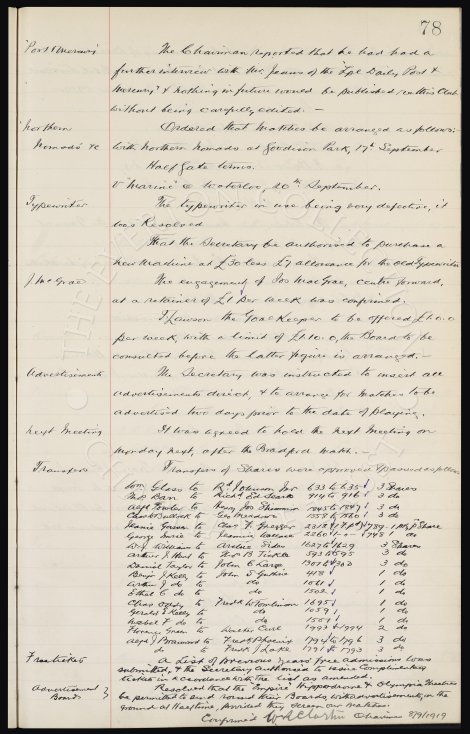 78
"Post & Mercury"
The Chairman reported that he had had a
further interview with Mr. Jeans of the "Lpl Daily Post &
Mercury" & nothing in future would be published re this Club
without being carefully edited. -
Northern
Nomads &c
Ordered that Matches be arranged as follows:-
with Northern Nomads at Goodison Park, 17th September
Half Gate terms.
v "Marine" @ Waterloo, 20th September.
Typewriter
The typewriter in use being very defective, it
was Resolved
That the Secretary be authorised to purchase a
new Machine at £30 less £7 allowance for the old Typewriter
J. McGrae
The engagement of Jos MacGrae, centre forward,
at a retainer of £1 per week was confirmed.
T Lawson the Goal Keeper to be offered £1.0.0
per week, with a limit of £1.10.0, the Board to be
consulted before the latter figure is arranged. -
Advertisements
The Secretary was instructed to insert all
advertisements direct, & to arrange for Matches to be
advertised two days prior to the date of playing.
Next Meeting
It was agreed to hold the Next Meeting on
Monday next, after the Bradford Match. -
Transfers
Transfers of Shares were approved & passed as follows
Wm. Glass to Rd. Johnson Jnr 633 to 635 3 Shares
Barr to Richd. Ed. Searle 914 to 916 3 do
Alfd. Fowler to Henry Jas. 1845 to 1847 3 do
to Geo. 1558 to 1560 3 do
to Chas. F. Gregger
George to Jeannie Wallace 2260 1 do
Williams to Archie 1627 to 1629 3 Shares
Arthur J. to Tickle 593 to 595 3 do
Daniel Taylor to John Large 3 do
Benjn. J. Kelly to John S. Guthrie 418 1 do
Arthur J. do to do 1061 1 do
Ethel E. do to do 1502 1 do
Chas. to Fredk. W. Tomlinson 1695 1 do
Gerald E. Kelly to do 1059 1 do
Mabel F. do to do 1501 1 do
Florence to 1993 & 1994 2 do
Alf. J. to Fredk. 1794 to 1796 3 do
do to Fredk. J. Lake 1791 to 1793 3 do
Free tickets
A List of Previous years Free Admissions was
submitted, & the Secretary authorised to issue Complimentary
tickets in accordance with the list as amended.
Advertisement
Boards
Resolved that the "Empire" Hippodrome & Olympia Theatres
be permitted to send round their Boards, with advertisements, on the
ground at Half time, provided they screen our matches.
Confirmed W. R. Clayton Chairman 8/9/1919